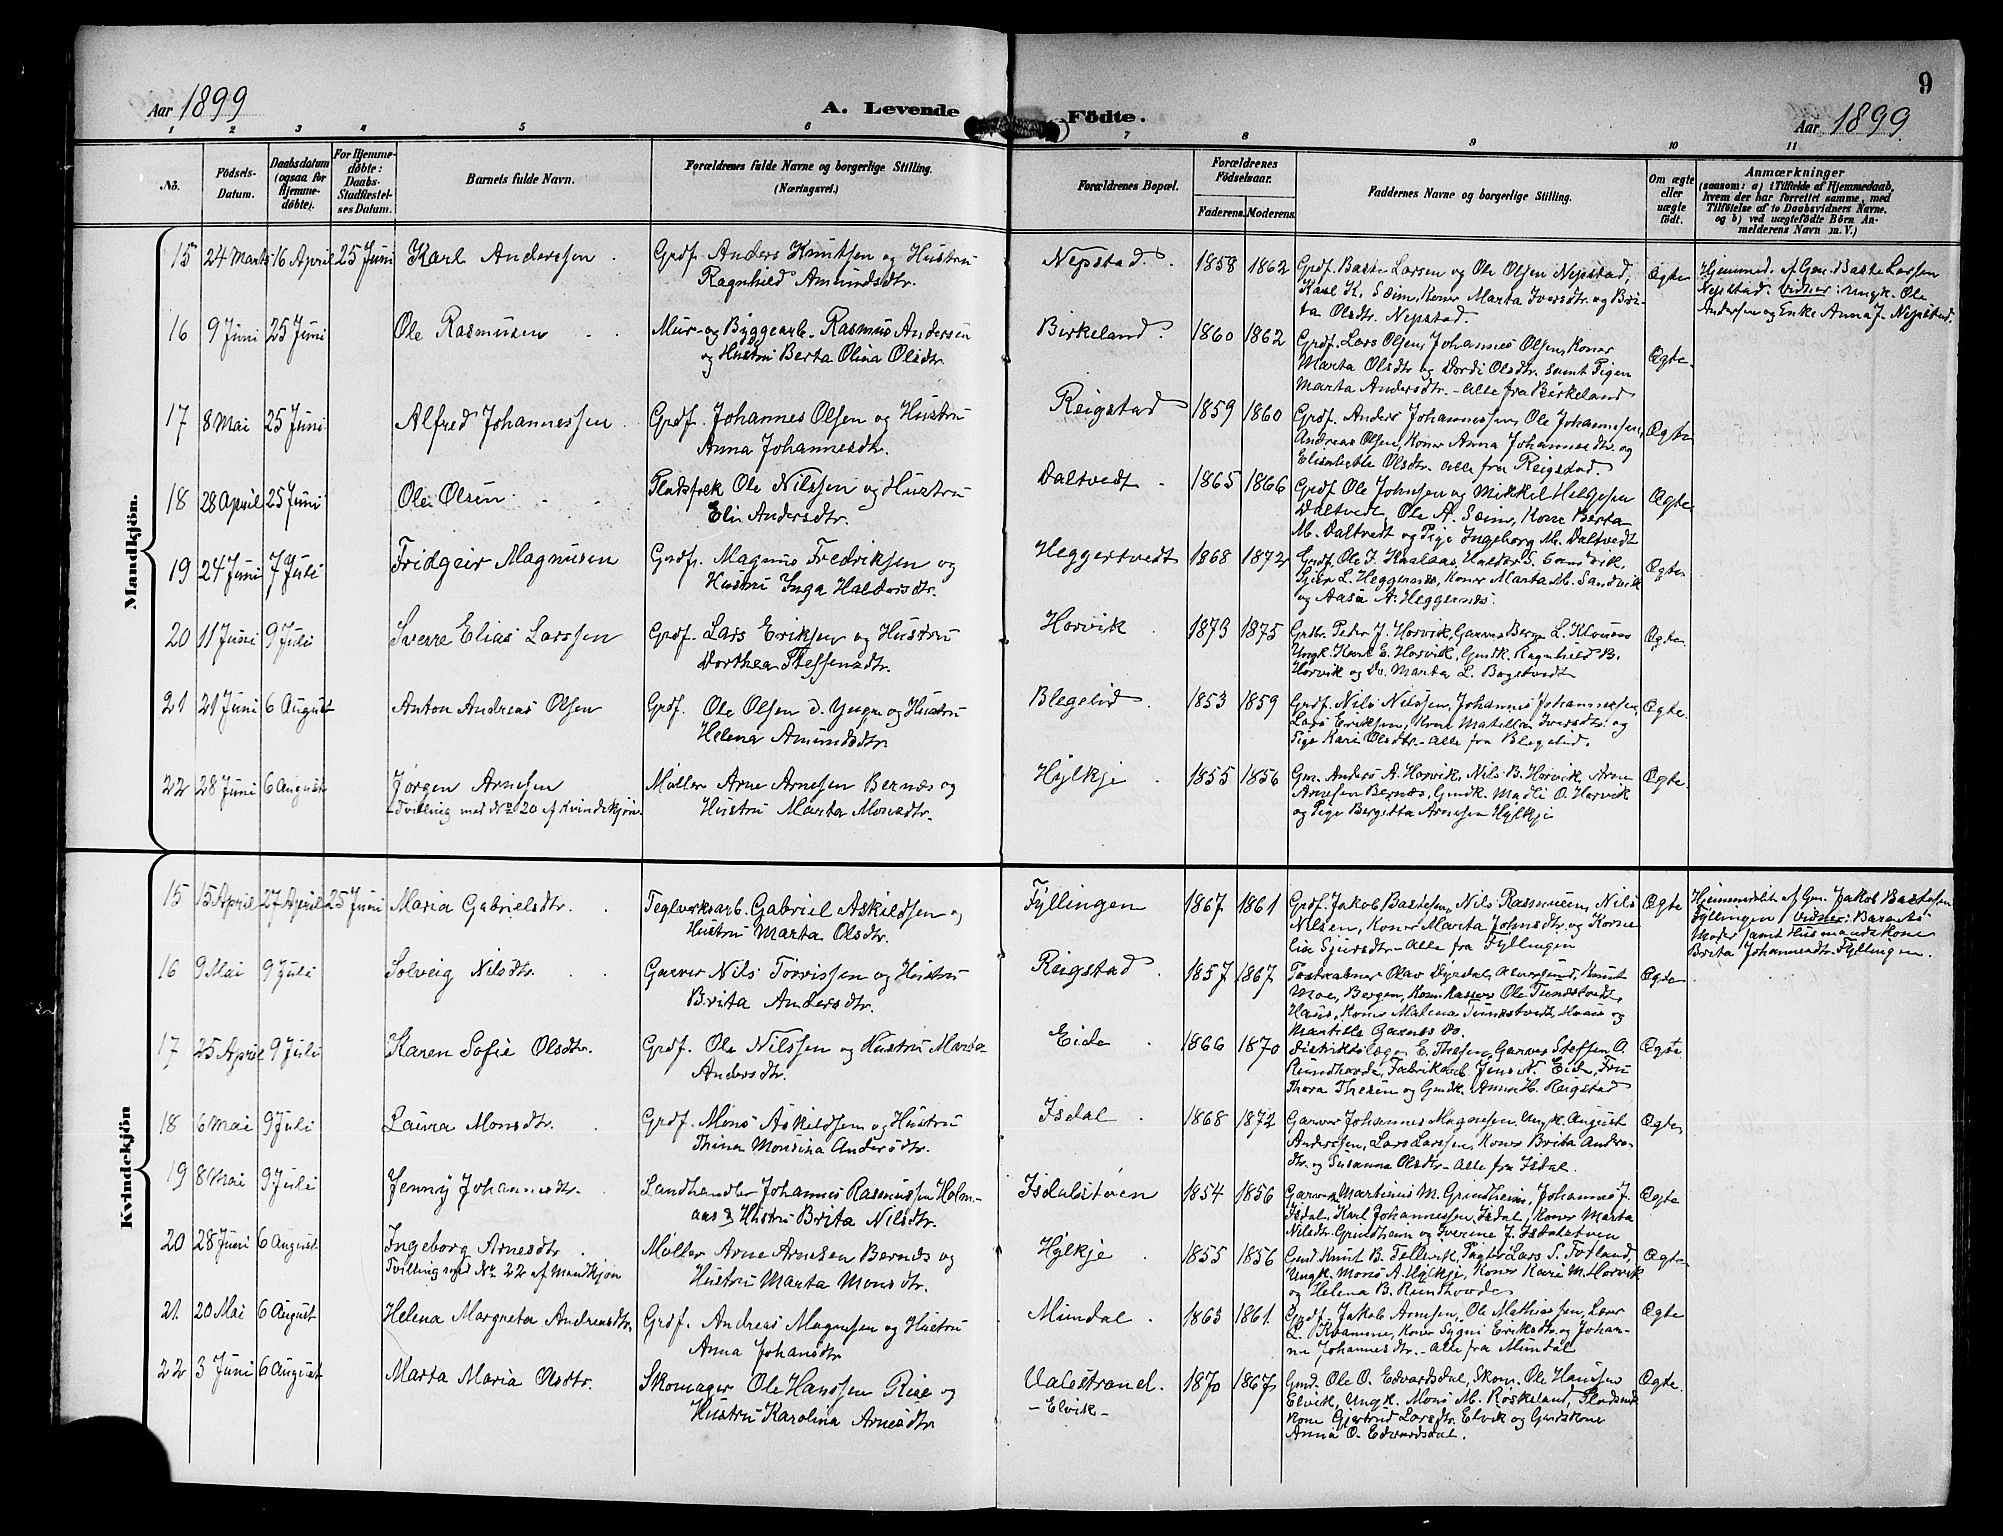 9
Aar 1899
A. Levende Födte.
Aar 1899.
1 2 3 4 5 6 7 8 9 10 11
No.
Födsels-Datum.
Daabsdatum (ogsaa for Hjemme-döbte).
For Hjemme-döbte: Daabs-Stadfæstel-ses Datum.
Barnets fulde Navn.
Forældrenes fulde Navne og borgerlige Stilling. (Næringsvei.)
Forældrenes Bopæl.
Forældrenes Födselsaar.
Faderens. Moderens.
Faddernes Navne og borgerlige Stilling.
Om ægte eller uægte födt.
Anmærkninger
(saasom: a) i Tilfælde af Hjemmedaab, hvem der har forrettet samme, med Tilföielse af to Daabsvidners Navne, og b) ved uægtefödte Börn An-melderens Navn m. V.)
Mandkjön.
15 24 Marts 16 April 25 Juni Karl Anderssen Grdf. Anders Knutsen og Hustru
Ragnhild Amundsdtr.
Nepstad. 1858 1862 Grdf. Baste Larsen og Ole Olsen Nepstad,
Karl K. Sæim, Koner Marta Iversdtr. og Bri-
ta Olsdtr. Nepstad.
Ægte
Hjemmed. af Gm. Baste Larsen
Nepstad. Vidner: Ungk. Ole
Andersen og Enke Anna J. Nepstad.
16 9 Juni 25 Juni Ole Rasmusen Mur- og Byggearb. Rasmus Andersen
og Hustru Berta Olina Olsdtr.
Birkeland 1860 1862 Grdf. Lars Olsen, Johannes Olsen, Koner
Marta Olsdtr. og Dordi Olsdtr. samt Pigen
Marta Andersdtr. - alle fra Birkeland
Ægte
17 8 Mai 25 Juni Alfred Johannessen Grdf. Johannes Olsen og Hustru
Anna Johannesdtr.
Reigstad 1859 1860 Grdf. Anders Johannessen, Ole Johannesen,
Andreas Olsen, Koner Anna Johannesdtr. og
Elisabeth Olsdtr. alle fra Reigstad.
Ægte
18 28 April 25 Juni Ole Olsen Pladsfrek Ole Nilssen og Hustru
Eli Andersdtr.
Daltvedt 1865 1866 Grdf. Ole Johnsen og Mikkel Helgesen
Daltvedt, Ole A. Sæim, Kone Berta
M. Daltvedt og Pige Ingeborg M. Daltvedt
Ægte
19 24 Juni 7 Juli Fridgeir Magnusen Grdf. Magnus Fredriksen og
Hustru Inga Haldorsdtr.
Heggertvedt 1868 1872 Grdf. Ole J. Haalaas, Haldor S. Sandvik,
L. Heggernæs, Koner Marta M. Sandvik
og Aasa A. Heggernæs.
Ægte
20 11 Juni 9 Juli Sverre Elias Larssen Grdf. Lars Eriksen og Hustru
Dorthea Steffensdtr.
Horvik 1873 1875 Grdbr. Peder J. Horvik, Garver Berge L.
Ungk. Karl E. Horvik, Gmdk. Ragnhild B.
Horvik og Do. Marta L. Bogetvedt
Ægte
21 21 Juni 6 August Anton Andreas Olsen Grdf. Ole Olsen d. Yngre og Hustru
Helena Amundsdtr.
Blegelid 1853 1859 Grdf. Nils Nilssen, Johannes Johannesen,
Lars Eriksen, Kone Matilda Iversdtr. og
Pige Kari Olsdtr. - alle fra Blegelid.
Ægte.
22 28 Juni 6 August Jørgen Arnesen Møller Arne Arnesen Bernæs og
- Tvilling med No 20 af Kvindekjøn. Hustru Marta Monsdtr.
Hylkje 1855 1856 Gm. Anders A. Horvik, Nils B. Horvik, Arne
Arnesen Bernæs, Gmdk. Madli O. Horvik
og Pige Bergitta Arnesen Hylkje
Ægte
Kvindekjön
15 15 April 27 April 25 Juni Maria Gabrielsdtr. Teglverksarb. Gabriel Askildsen og
Hustru Marta Olsdtr.
Fyllingen 1867 1861 Grdf. Jakob Bastesen, Nils Rasmusen, Nils
Nilsen, Koner Marta Johnsdtr. og Korne-
lia Sjursdtr. - Alle fra Fyllingen
Ægte
Hjemmedøbt af Gm. Jakob Bastesen
Fyllingen, Vidner: Barnets
Moder samt Husmandskone
Brita Johannesdtr. Fyllingen.
16 9 Mai 9 Juli Solveig Nilsdtr. Garver Nils Torrissen og Hustru
Brita Andersdtr.
Reigstad 1857 1867 Olav Dyrdal, Alversund, Knut
Moe, Bergen, Ole Tunestvedt,
Haus, Kone Malena Tunestvedt, Haus og
Garnes Do.
Ægte
17 25 April 9 Juli Karen Sofie Olsdtr. Grdf. Ole Nilssen og Hustru Marta
Andersdtr.
Eide 1866 1870 Distriktslæge E. Thesen, Garver Steffen O.
Rundhovde, Fabrikarb. Jens N. Eide, Fru
Thora Thesen og Gmdk. Anna H. Reigstad
Ægte
18 6 Mai 9 Juli Laura Monsdtr. Grdf. Mons Askildsen og Hustru
Thina Monsina Andersdtr.
Isdal 1868 1872 Garver Johannes Magnesen, Ungk. August
Anderssen, Lars Larssen, Koner Brita Anders-
dtr. og Susanna Olsdtr. - Alle fra Isdal.
Ægte
19 8 Mai 9 Juli Jenny Johannesdtr. Landhandler Johannes Rasmussen Holm-
aas & Hustru Brita Nilsdtr.
Isdalstøen 1854 1856 Garver Martinus M. Grindheim, Johannes J.
Isdal, Karl Johannessen Isdal, Koner Marta
Nilsdtr. Grindheim og Iverine J. Isdalstøen
Ægte
20 28 Juni 6 August Ingeborg Arnesdtr. Møller Arne Arnesen Bernæs og
Tvilling med No 22 af Mandkjøn Hustru Marta Monsdtr.
Hylkje 1855 1856 Gmd. Knut B. Tellevik, Pagter Lars S. Totland,
Ungk. Mons A. Hylkje, Koner Kari M. Horvik
og Helena B. Rundhovde
Ægte
21. 20 Mai 6 August Helena Margreta Andreasdtr. Grdf. Andreas Magnesen og Hustru
Anna Johansdtr.
Mundal 1863 1861 Grdf. Jakob Arnesen, Ole Mathiassen, Lars
L. Kvamme, Koner Sygni Eriksdtr. og Johan-
ne Johannesdtr. - Alle fra Mundal
Ægte
22 3 Juni 6 August Marta Maria Olsdtr. Skomager Ole Hanssen Rise og
Hustru Karolina Arnesdtr
Valestrand. - Elvik - 1870 1867 Gmd. Ole O. Edvardsdal, Skom. Ole Hanssen
Elvik, Ungk. Mons M. Røskeland, Pladsmd.
kone Gjertrud Larsdtr. Elvik og Gmdskone
Anna O. Edvardsdal.
Ægte.